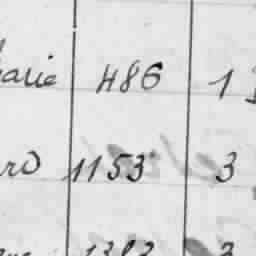 arie 486 1
rd 1153 3
1382 3